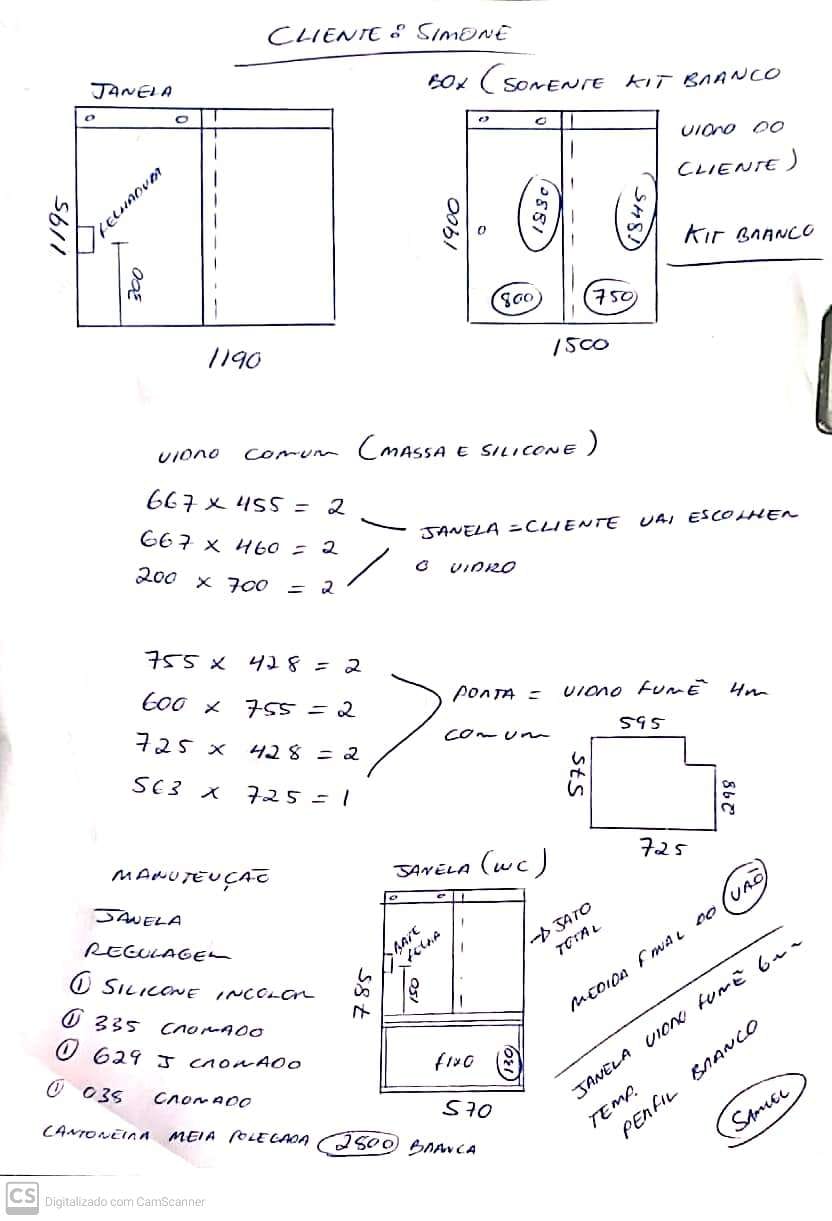 CLIENTE: SIMONE
JANELA
1195
FECHADURA
300
1190
BOX (SOMENTE KIT BRANCO
VIDRO DO
CLIENTE)
KIT BRANCO
1900
1880
1845
800
750
1500
VIDRO COMUM (MASSA E SILICONE)
667 x 455 = 2
667 x 460 = 2
200 x 700 = 2
JANELA = CLIENTE VAI ESCOLHER
O VIDRO
755 x 428 = 2
600 x 755 = 2
725 x 428 = 2
563 x 725 = 1
PORTA = VIDRO FUMÊ 4m
COMUM
595
575
298
725
MANUTENÇÃO
JANELA
REGULAGEM
① SILICONE INCOLOR
① 335 CROMADO
① 629 J CROMADO
① 038 CROMADO
CANTONEIRA MEIA POLEGADA 2800 BRANCA
JANELA (WC)
785
BATE
FECHA
150
FIXO
130
570
→ JATO
TOTAL
MEDIDA FINAL DO VÃO
JANELA VIDRO FUMÊ 6mm
TEMP.
PERFIL BRANCO
SAMUEL
CS Digitalizado com CamScanner